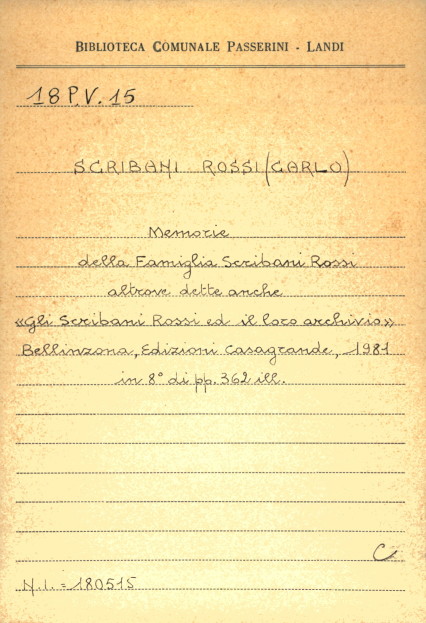 BIBLIOTECA COMUNALE PASSERINI - LANDI
18 P.V. 15
SCRIBANI ROSSI (CARLO)
Memorie
della Famiglia Scribani Rossi
altrove dette anche
«Gli Scribani Rossi ed il loro archivio»
Bellinzona, Edizioni Casagrande, 1981
in 8° di pp. 362 ill.
C
N.I. = 180515